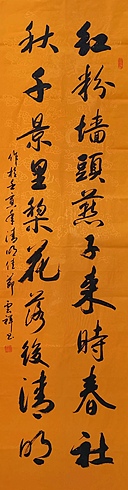 红粉墙頭燕子来時春社
秋千景里梨花落後清明
作於壬寅年清明佳節雲祥书